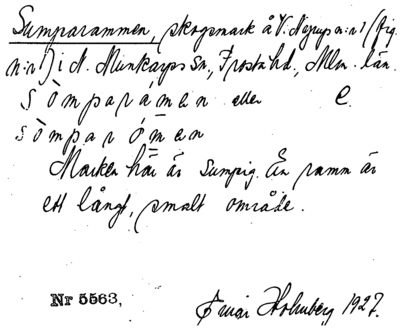 Sumparammen, skogsmark å V. Nygup n:r 1 (fig.
n:r 1) i N. Munkarps Sn., Frosta hd., Mlm. län.
sòmparámen eller e.
sòmparómen
Marken här är sumpig. En ramm är
ett långt, smalt område.
Nr 5563, Einar Holmberg 1927.